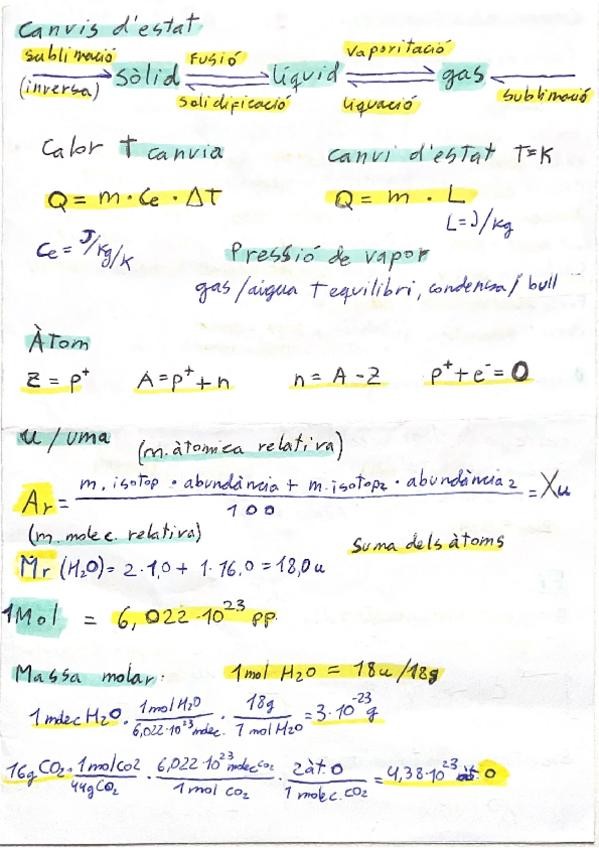 Canvis d'estat
sublimació fusió vaporització
(inversa) sòlid líquid gas
solidificació liquació sublimació
Calor T canvia canvi d'estat T=K
Q = m · Ce · ΔT Q = m · L
L=J/kg
Ce = J/kg/K Pressió de vapor
gas/aigua T equilibri, condensa/bull
Àtom
Z = p⁺ A=p⁺+n n = A-Z p⁺+e⁻=0
u/uma
(m. àtomica relativa)
Ar = m. isotop · abundància + m. isotop2 · abundància 2 / 100 = Xu
(m. molec. relativa)
Suma dels àtoms
Mr (H₂O) = 2·1,0 + 1·16,0 = 18,0u
1Mol = 6,022·10²³ pp.
Massa molar: 1mol H₂O = 18u/18g
1 molec H₂O · 1mol H₂O / 6,022·10²³ molec. · 18g / 1 mol H₂O = 3·10⁻²³ g
16g CO₂ · 1mol CO2 / 44g CO₂ · 6,022·10²³ molec CO₂ / 1 mol CO₂ · 2 àt. O / 1 molec. CO₂ = 4,38·10²³ àt. O